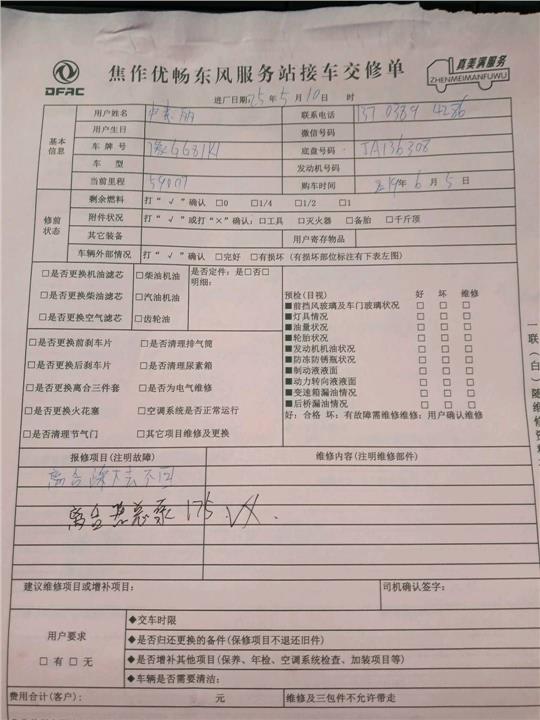 DFAC
焦作优畅东风服务站接车交修单
真美满服务
ZHENMEIMANFUWU
进厂日期:25年5月10日 时
基本信息
用户姓名 联系电话
用户生日 微信号码
车牌号 豫GG81K1 底盘号码 JA136308
车型 发动机号码
当前里程 购车时间 2019年6月5日
修前状态
剩余燃料 打“√”确认 □0 □1/4 □1/2 □1
附件状况 打“√”或打“×”确认:□工具 □灭火器 □备胎 □千斤顶
其它装备 用户寄存物品
车辆外部情况 打“√”确认 □完好 □有损坏 (有损坏部位标注有下表左图)
□是否更换机油滤芯 □柴油机油 是否定件:是□否□
明细:
□是否更换柴油滤芯 □汽油机油
□是否更换空气滤芯 □齿轮油
预检(目视) 好 坏 维修
■前挡风玻璃及车门玻璃状况 □ □ □
■灯具情况 □ □ □
■油量状况 □ □ □
■轮胎状况 □ □ □
■发动机机油状况 □ □ □
■防冻防锈瓶状况 □ □ □
■制动液液面 □ □ □
■动力转向液液面 □ □ □
■变速箱漏油情况 □ □ □
■后桥漏油情况 □ □ □
好:合格 坏:有故障需维修维修:用户确认维修
□是否更换前刹车片 □是否清理排气筒
□是否更换后刹车片 □是否清理尿素箱
□是否更换离合三件套 □是否为电气维修
□是否更换火花塞 □空调系统是否正常运行
□是否清理节气门 □其它项目维修及更换
报修项目(注明故障) 维修内容(注明维修部件)
离合踩下去不回
离合总泵 175
建议维修项目或增补项目: 司机确认签字:
用户要求
□有 □无
◆交车时限
◆是否归还更换的备件(保修项目不退还旧件)
◆是否增补其他项目(保养、年检、空调系统检查、加装项目等)
◆车辆是否需要清洁:
费用合计(客户): 元 维修及三包件不允许带走
一联(白)随维修资料